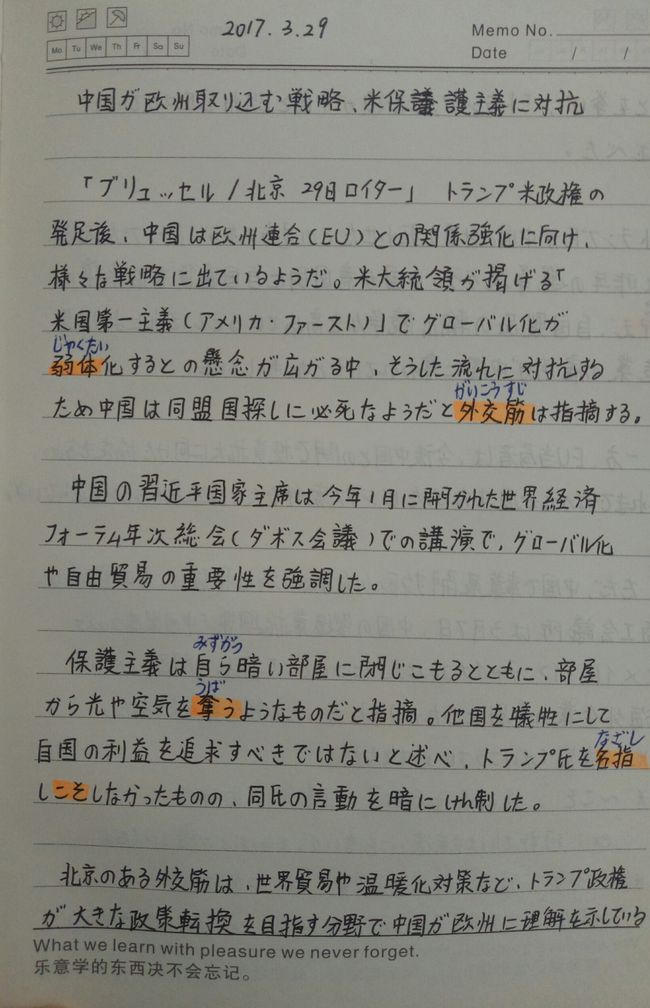 2017.3.29
Memo No.
Mo Tu We Th Fr Sa Su
Date / /
中国が欧州取り込む戦略、米保議護主義に対抗
「ブリュッセル/北京 29日ロイター」 トランプ米政権の
発足後、中国は欧州連合(EU)との関係強化に向け、
様々な戦略に出ているようだ。米大統領が掲げる「
米国第一主義(アメリカ・ファースト)」でグローバル化が
じゃくたい
弱体化するとの懸念が広がる中、そうした流れに対抗する
がいこうすじ
ため中国は同盟国探しに必死なようだと外交筋は指摘する。
中国の習近平国家主席は今年1月に開かれた世界経済
フォーラム年次総会(ダボス会議)での講演で、グローバル化
や自由貿易の重要性を強調した。
みずがっ
保護主義は自ら暗い部屋に閉じこもるとともに、部屋
うば
から光や空気を奪うようなものだと指摘。他国を犠牲にして
なざし
自国の利益を追求すべきではないと述べ、トランプ氏を名指
しこそしなかったものの、同氏の言動を暗にけん制した。
北京のある外交筋は、世界貿易や温暖化対策など、トランプ政権
が大きな政策転換を目指す分野で中国が欧州に理解を示している
What we learn with pleasure we never forget.
乐意学的东西决不会忘记。